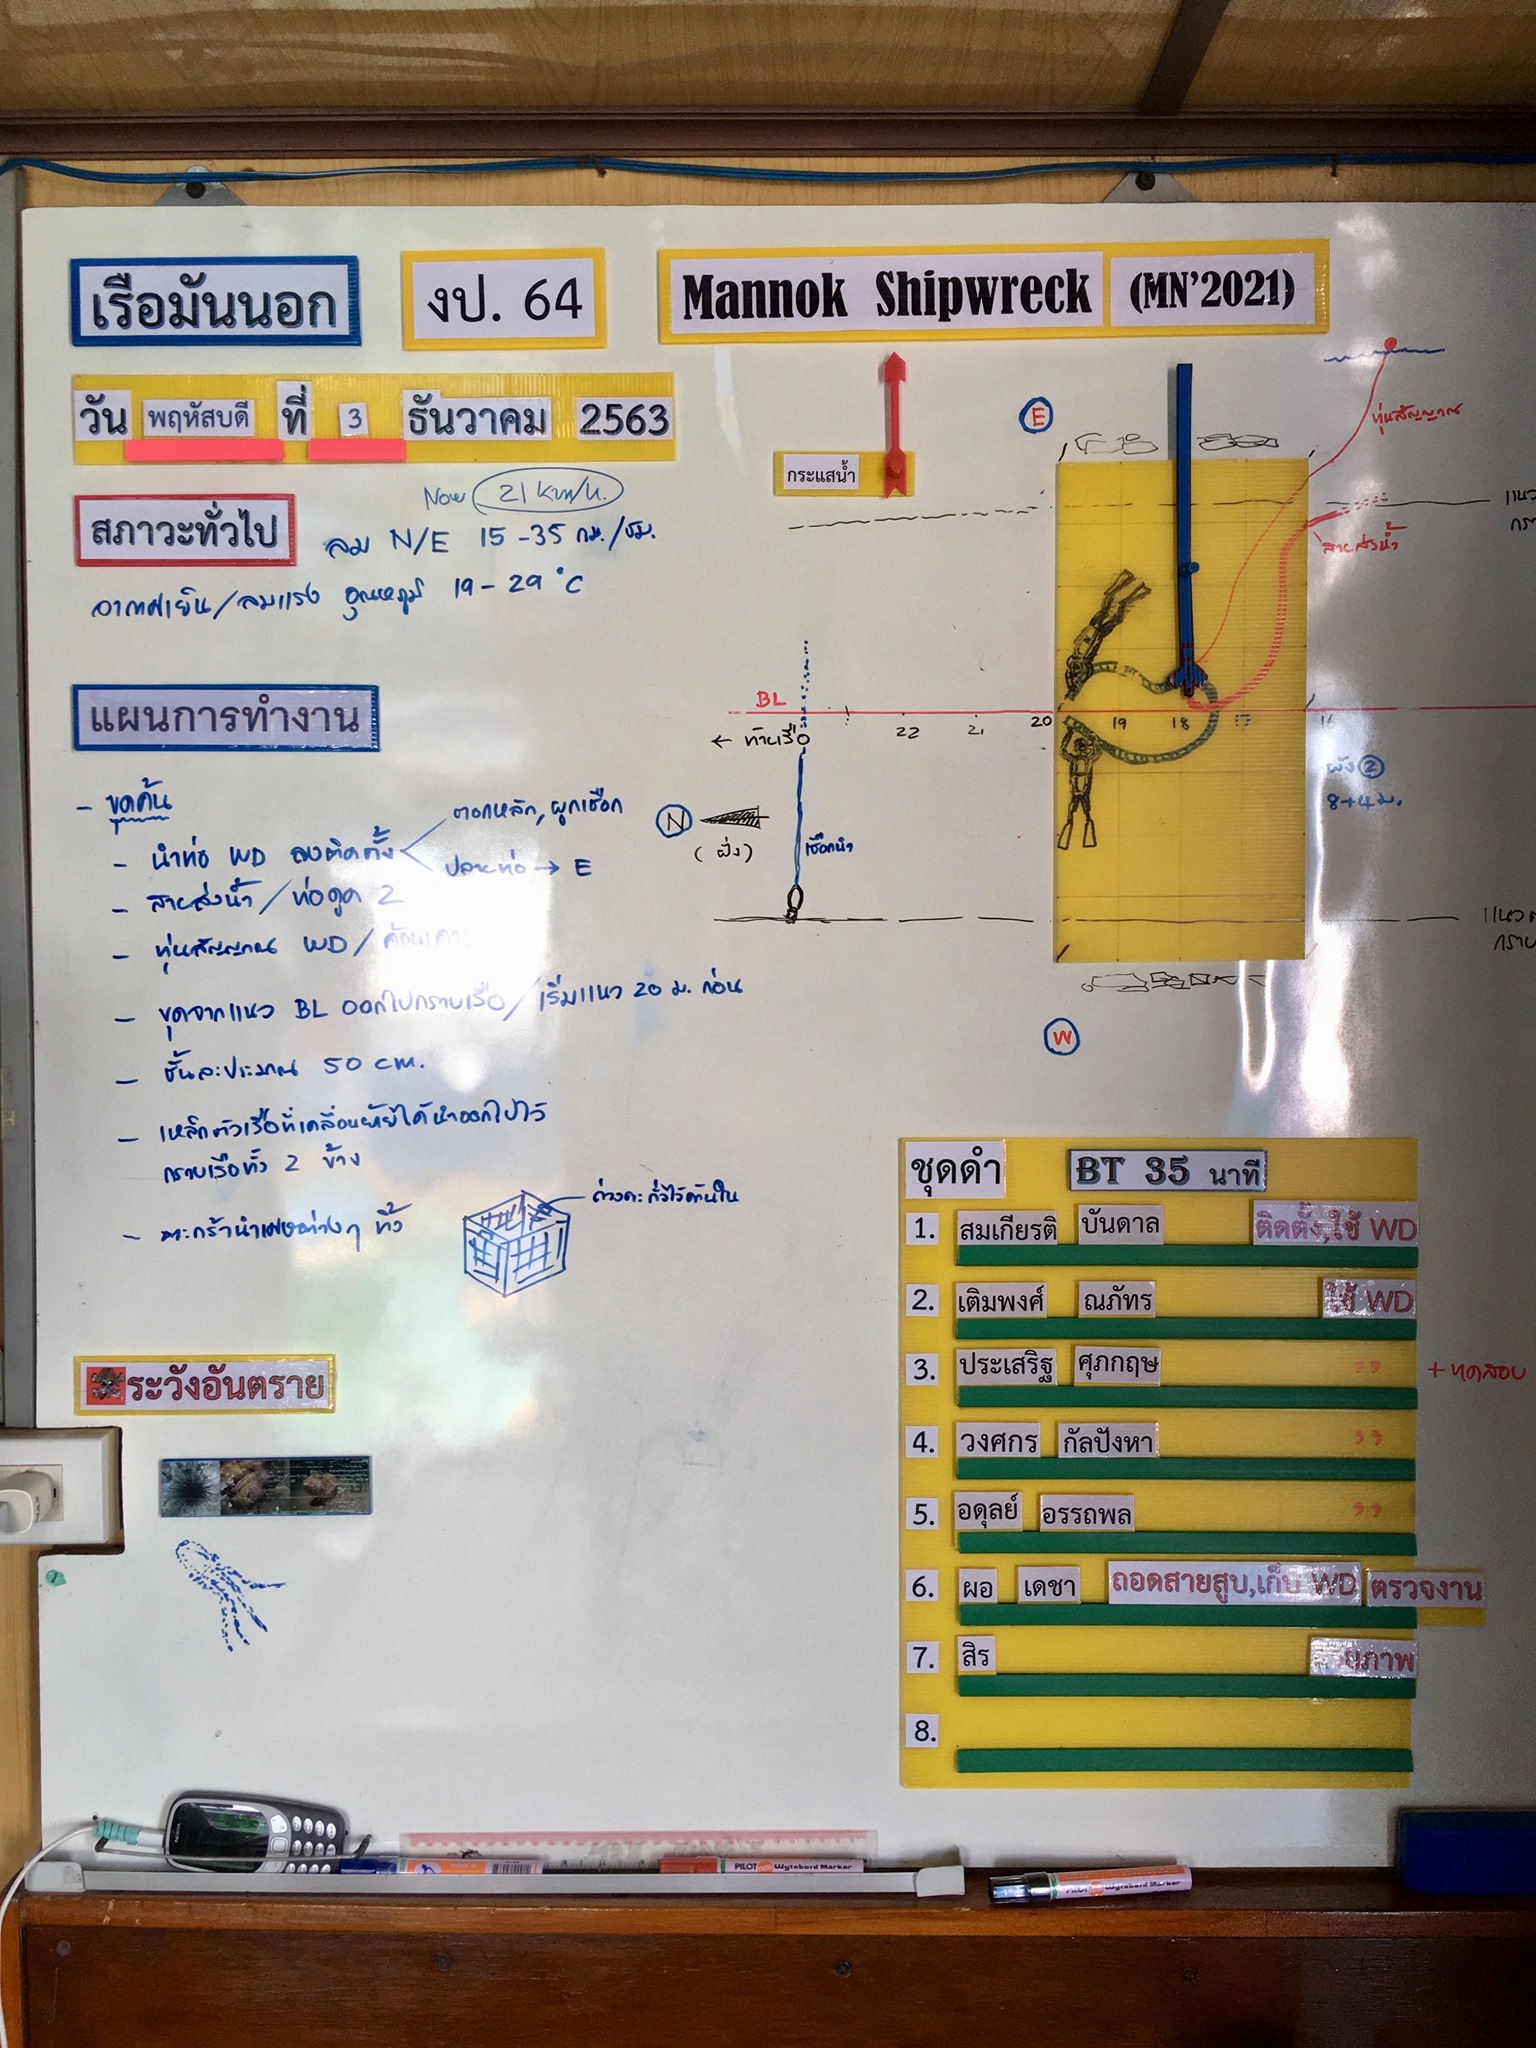 เรือมันนอก งป. 64 Mannok Shipwreck (MN'2021)
วัน พฤหัสบดี ที่ 3 ธันวาคม 2563
Now 21 km/h.
สภาวะทั่วไป ลม N/E 15-35 กม./ชม.
อากาศเย็น/ลมแรง อุณหภูมิ 19-29 °C
แผนการทำงาน
- ขุดค้น
- นำท่อ WD ลงติดตั้ง
ตอกหลัก, ผูกเชือก
ปลายท่อ → E
- สายส่งน้ำ/ท่อดูด 2
- ทุ่นสัญญาณ WD/
- ขุดจากแนว BL ออกไปกราบเรือ/เริ่มแนว 20 ม. ก่อน
- ชั้นละประมาณ 50 cm.
- เหล็กตัวเรือที่เคลื่อนย้ายได้นำออกไปไว้
กราบเรือทั้ง 2 ข้าง
- ตะกร้านำเศษต่างๆ ทิ้ง
ระวังอันตราย
กระแสน้ำ
E
ทุ่นสัญญาณ
แนว
สายส่งน้ำ
BL
← ท้ายเรือ
22 21 20 19 18 17 16
ผัง 2
8+4 ม.
N
(ฝั่ง)
เชือกนำ
W
ชุดดำ BT 35 นาที
1. สมเกียรติ บันดาล ติดตั้ง,ใช้ WD
2. เติมพงศ์ ณภัทร ใช้ WD
3. ประเสริฐ ศุภกฤษ " + ทดสอบ
4. วงศกร กัลปังหา "
5. อดุลย์ อรรถพล "
6. ผอ เดชา ถอดสายสูบ,เก็บ WD ตรวจงาน
7. สิร ยภาพ
8.
NOKIA
PILOT Wytebord Marker
PILOT Wytebord Marker